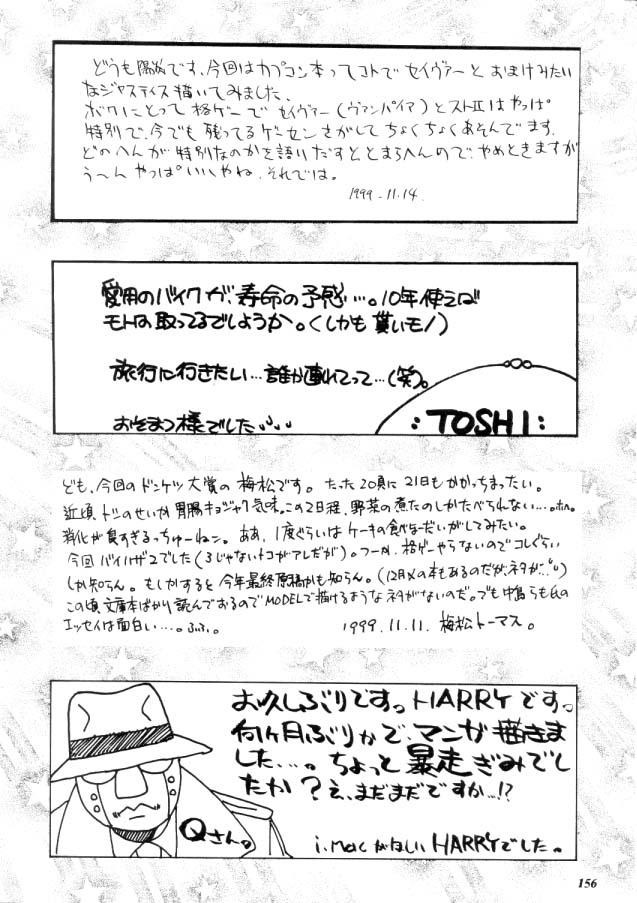 どうも陽気です、今回はカプコン本ってコトでセイヴァーとおまけみたい
なジャスティス描いてみました、
ボクにとって格ゲーでセイヴァー(ヴァンパイア)とストⅡはやっぱ
特別で、今でも残ってるゲーセンさがしてちょくちょくあそんでます、
どのへんが特別なのかを語りだすととまらへんので、やめときますが
う〜んやっぱいいやね、それでは。
1999.11.14.
愛用のバイクが、寿命の予感…。10年使えば
モトは取ってるでしょうか。(しかも貰いモノ)
旅行に行きたい…誰か連れてって…(笑)。
おそまつ様でした、、、
:TOSHI:
ども、今回のドンケツ大賞の梅松です。たった20頁に21日もかかっちまったい。
近頃、トシのせいか胃腸キョジャク気味。この2日程、野菜の煮たのしかたべられない…。
消化が良すぎるっちゅーねン。ああ、1度ぐらいはケーキの食べなーだいがしてみたい。
今回バイハザ2でした(3じゃないトコがアレだが)。フーか、格ゲーやらないのでコレぐらい
しか知らん。もしかすると今年最終原稿かも知らん。(12月〆の本もあるのだがネタが…)
この頃、文庫本ばかり読んでおるのでMODELで描けるようなネタがないのだ。でも中島らも氏の
エッセイは面白い…。ふふ。
1999.11.11. 梅松トーマス。
お久しぶりですっHARRYですっ
何ヶ月ぶりかで、マンガ描きま
した…。ちょっと暴走ぎみでし
たか?え、まだまだですか…!?
Qさん。
i.Macがほしい HARRYでした。
156